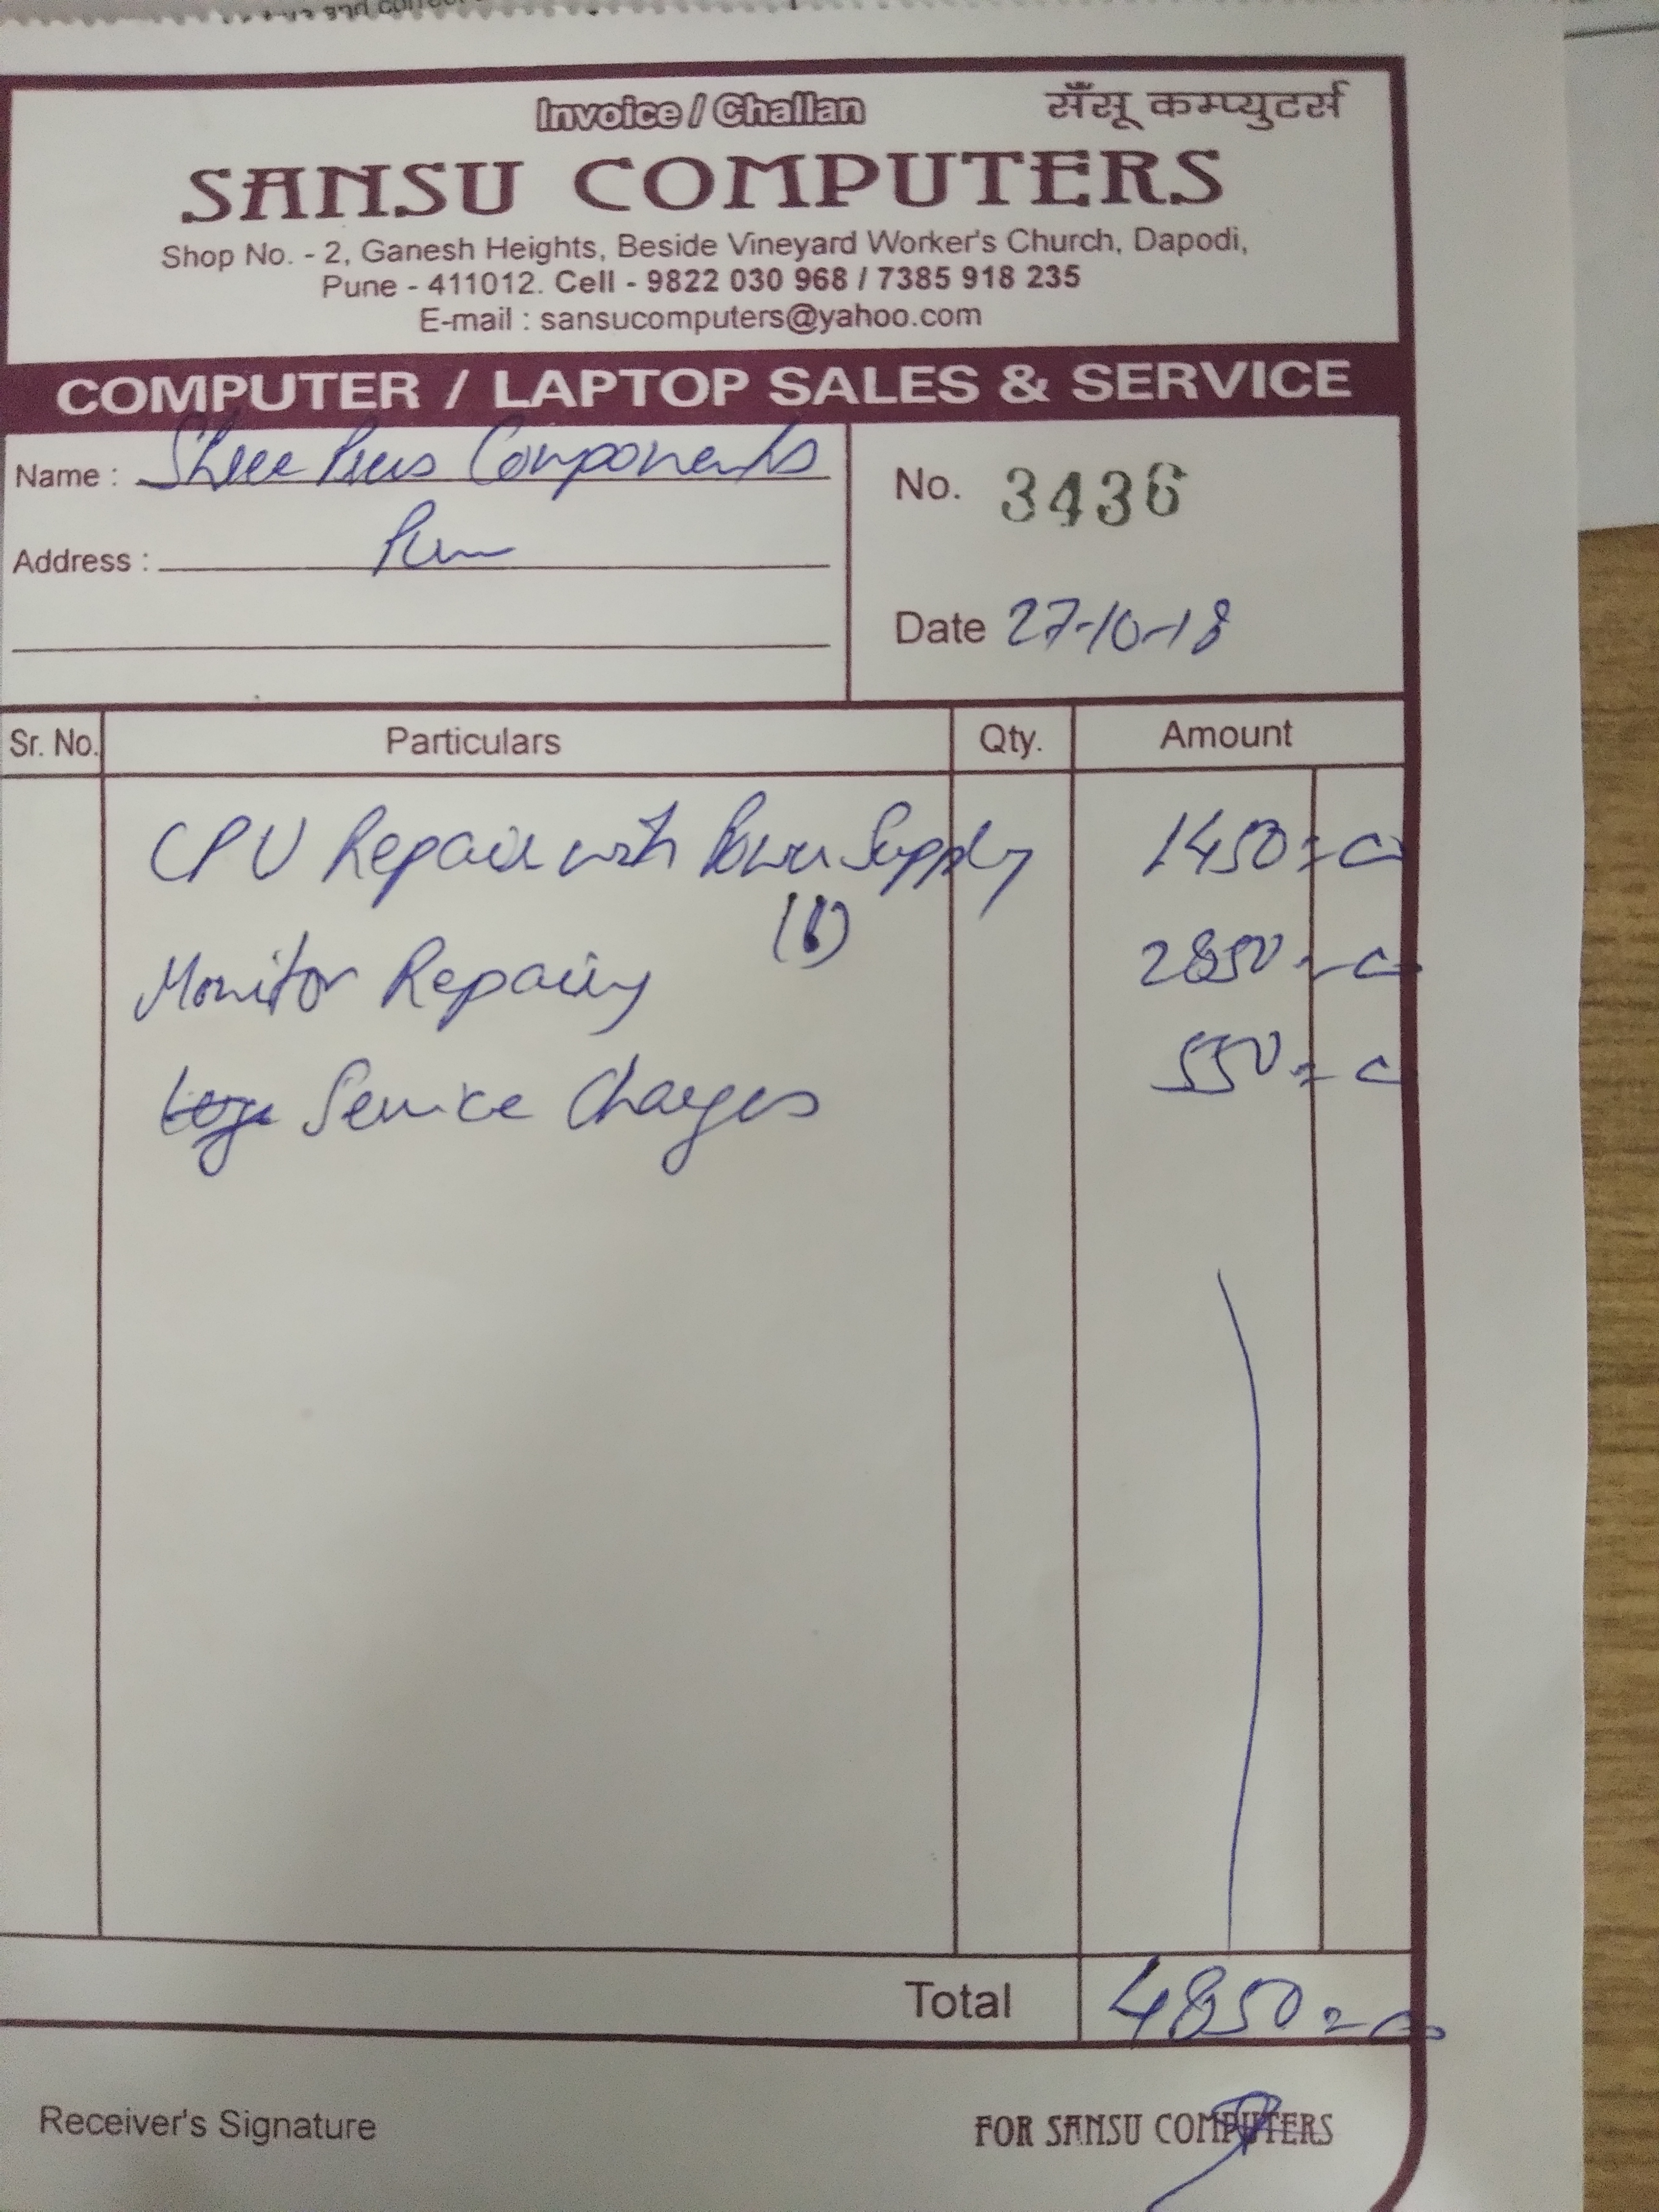 Invoice / Challan
सँसू कम्प्युटर्स
SANSU COMPUTERS
Shop No. - 2, Ganesh Heights, Beside Vineyard Worker's Church, Dapodi,
Pune - 411012. Cell - 9822 030 968 / 7385 918 235
E-mail : sansucomputers@yahoo.com
COMPUTER / LAPTOP SALES & SERVICE
Name : Shree Components
No. 3436
Address :
Date 27-10-18
Sr. No. Particulars Qty. Amount
CPU Repair with Power Supply 1450=00
Monitor Repairing 2850=00
Service Charges 550=00
Total 4850=00
Receiver's Signature
FOR SANSU COMPUTERS